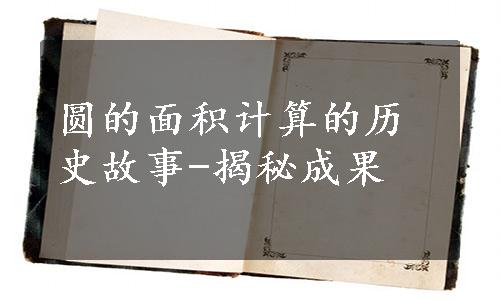 圆的面积计算的历
史故事-揭秘成果